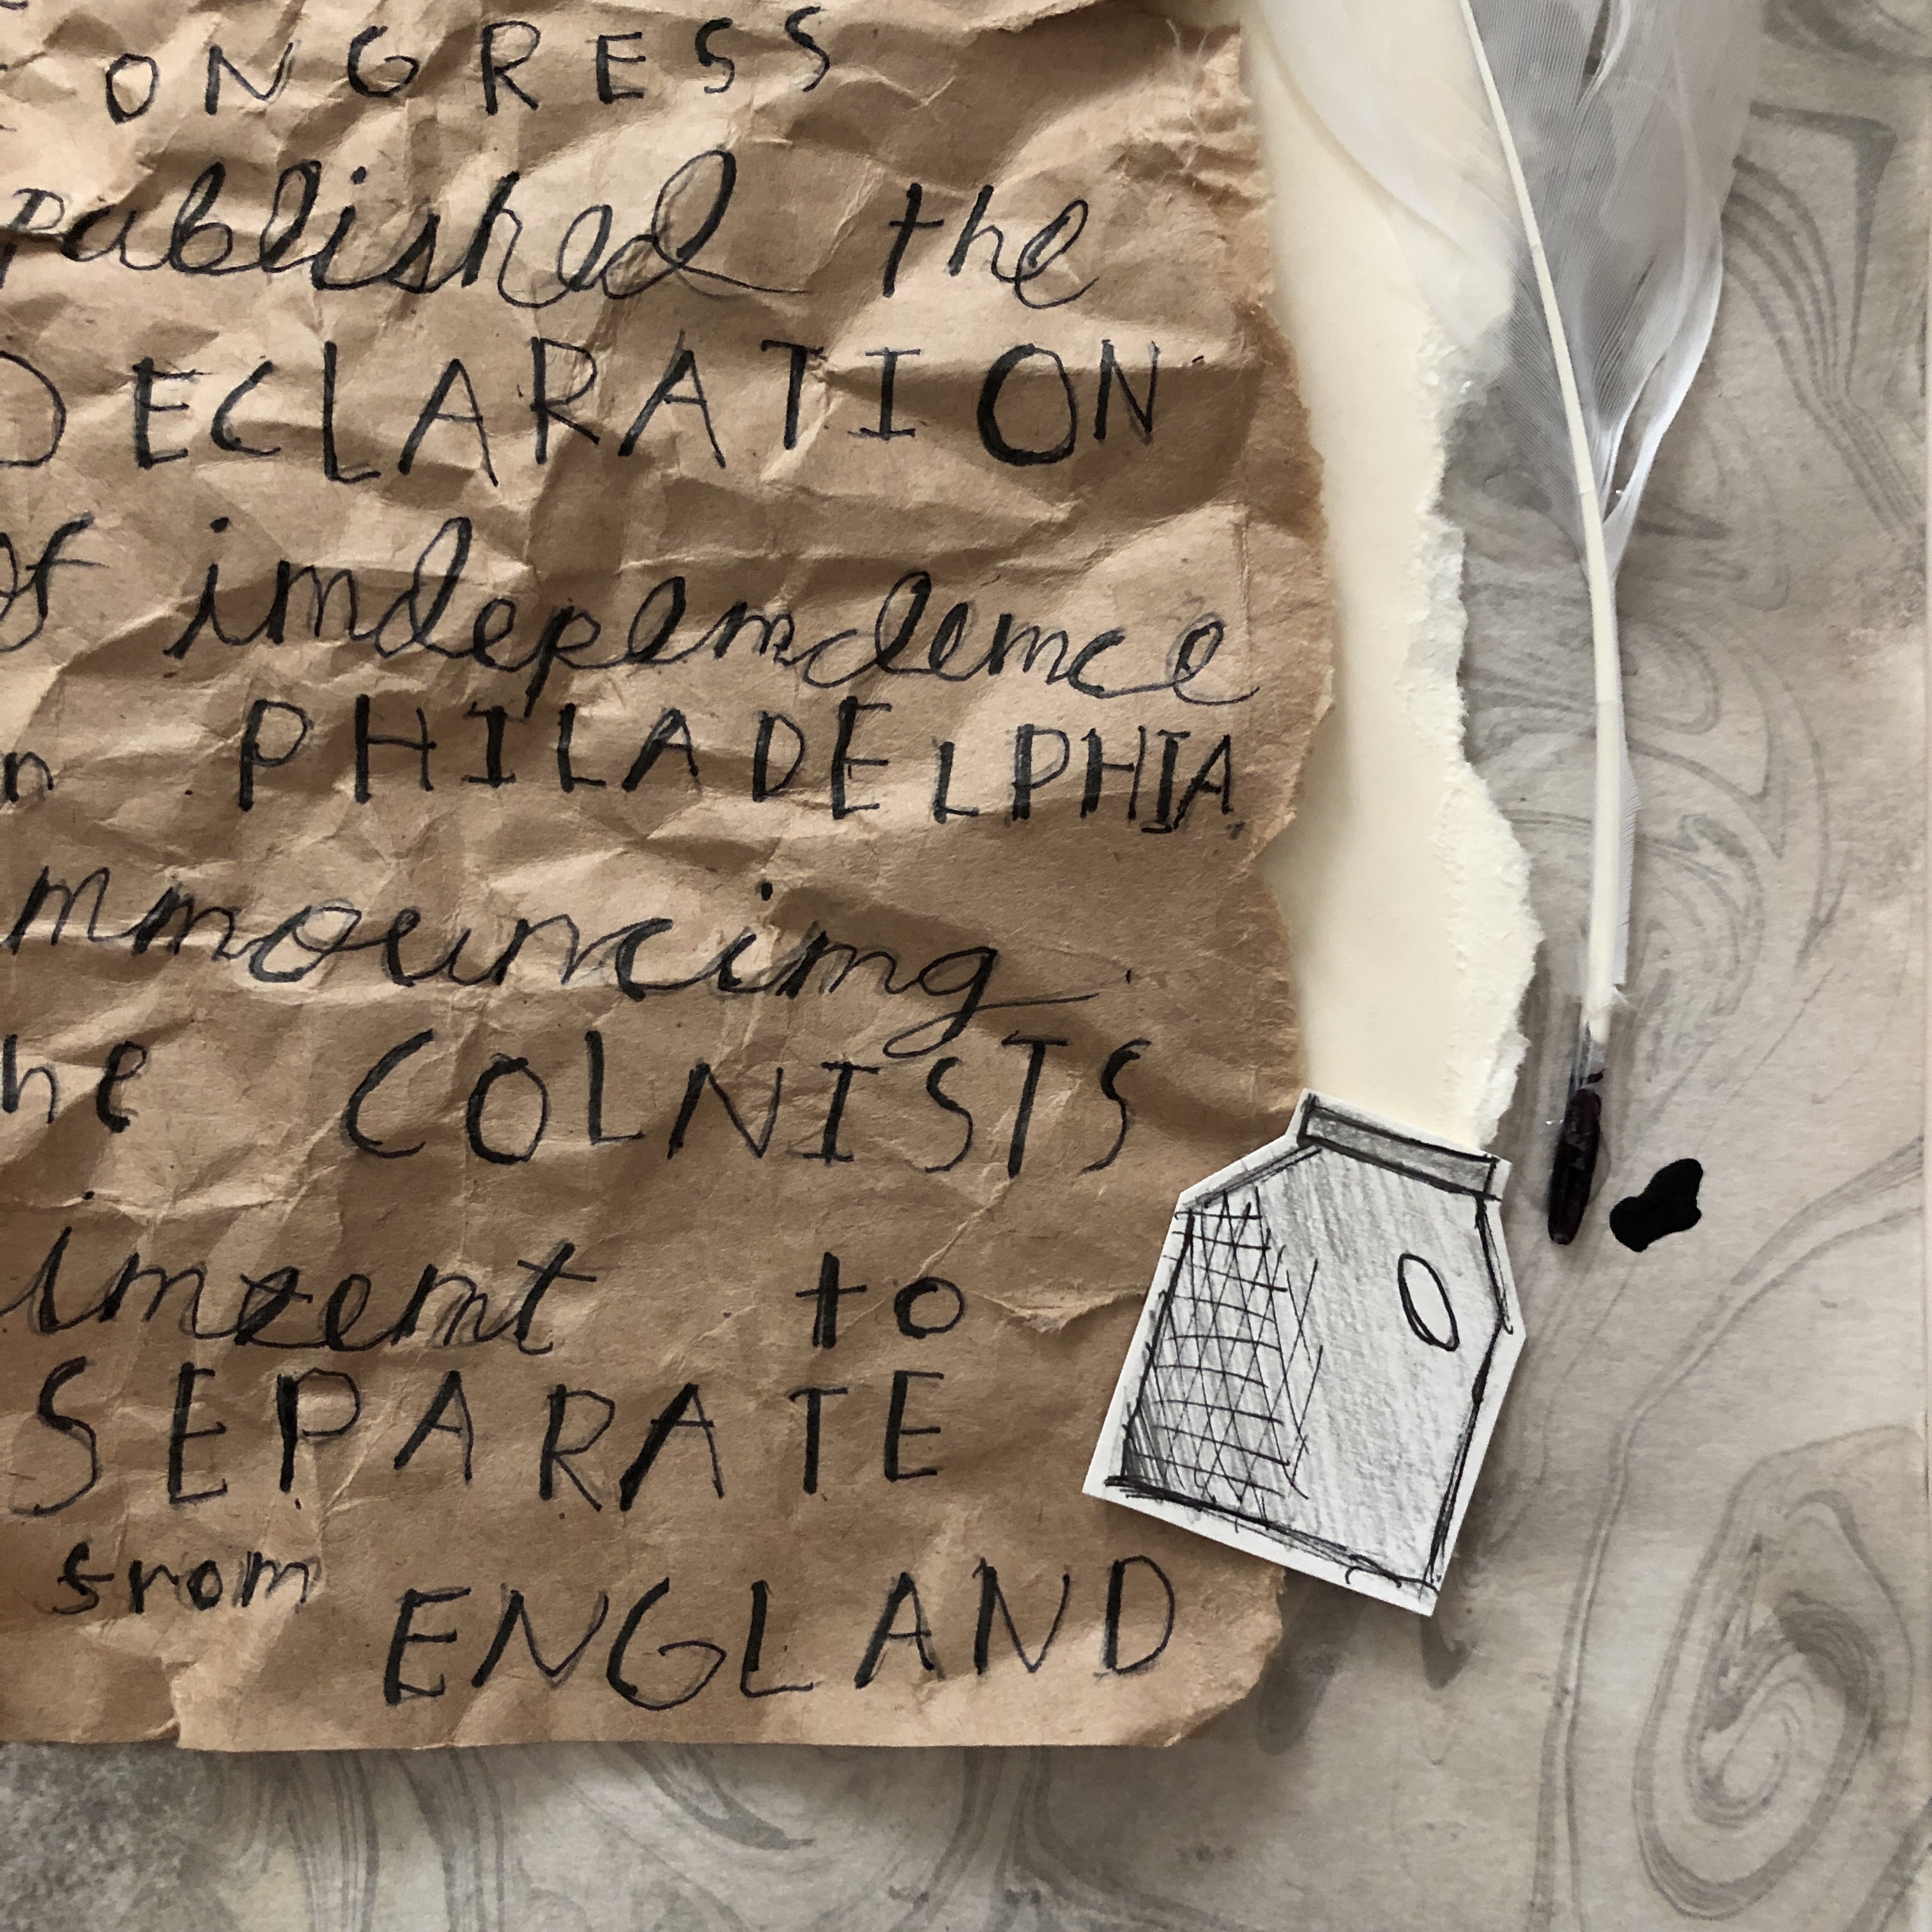 CONGRESS
published the
DECLARATION
of imdepemdemce
n PHILADELPHIA
mmouncimg
he COLNISTS
imtemt to
SEPARATE
from ENGLAND